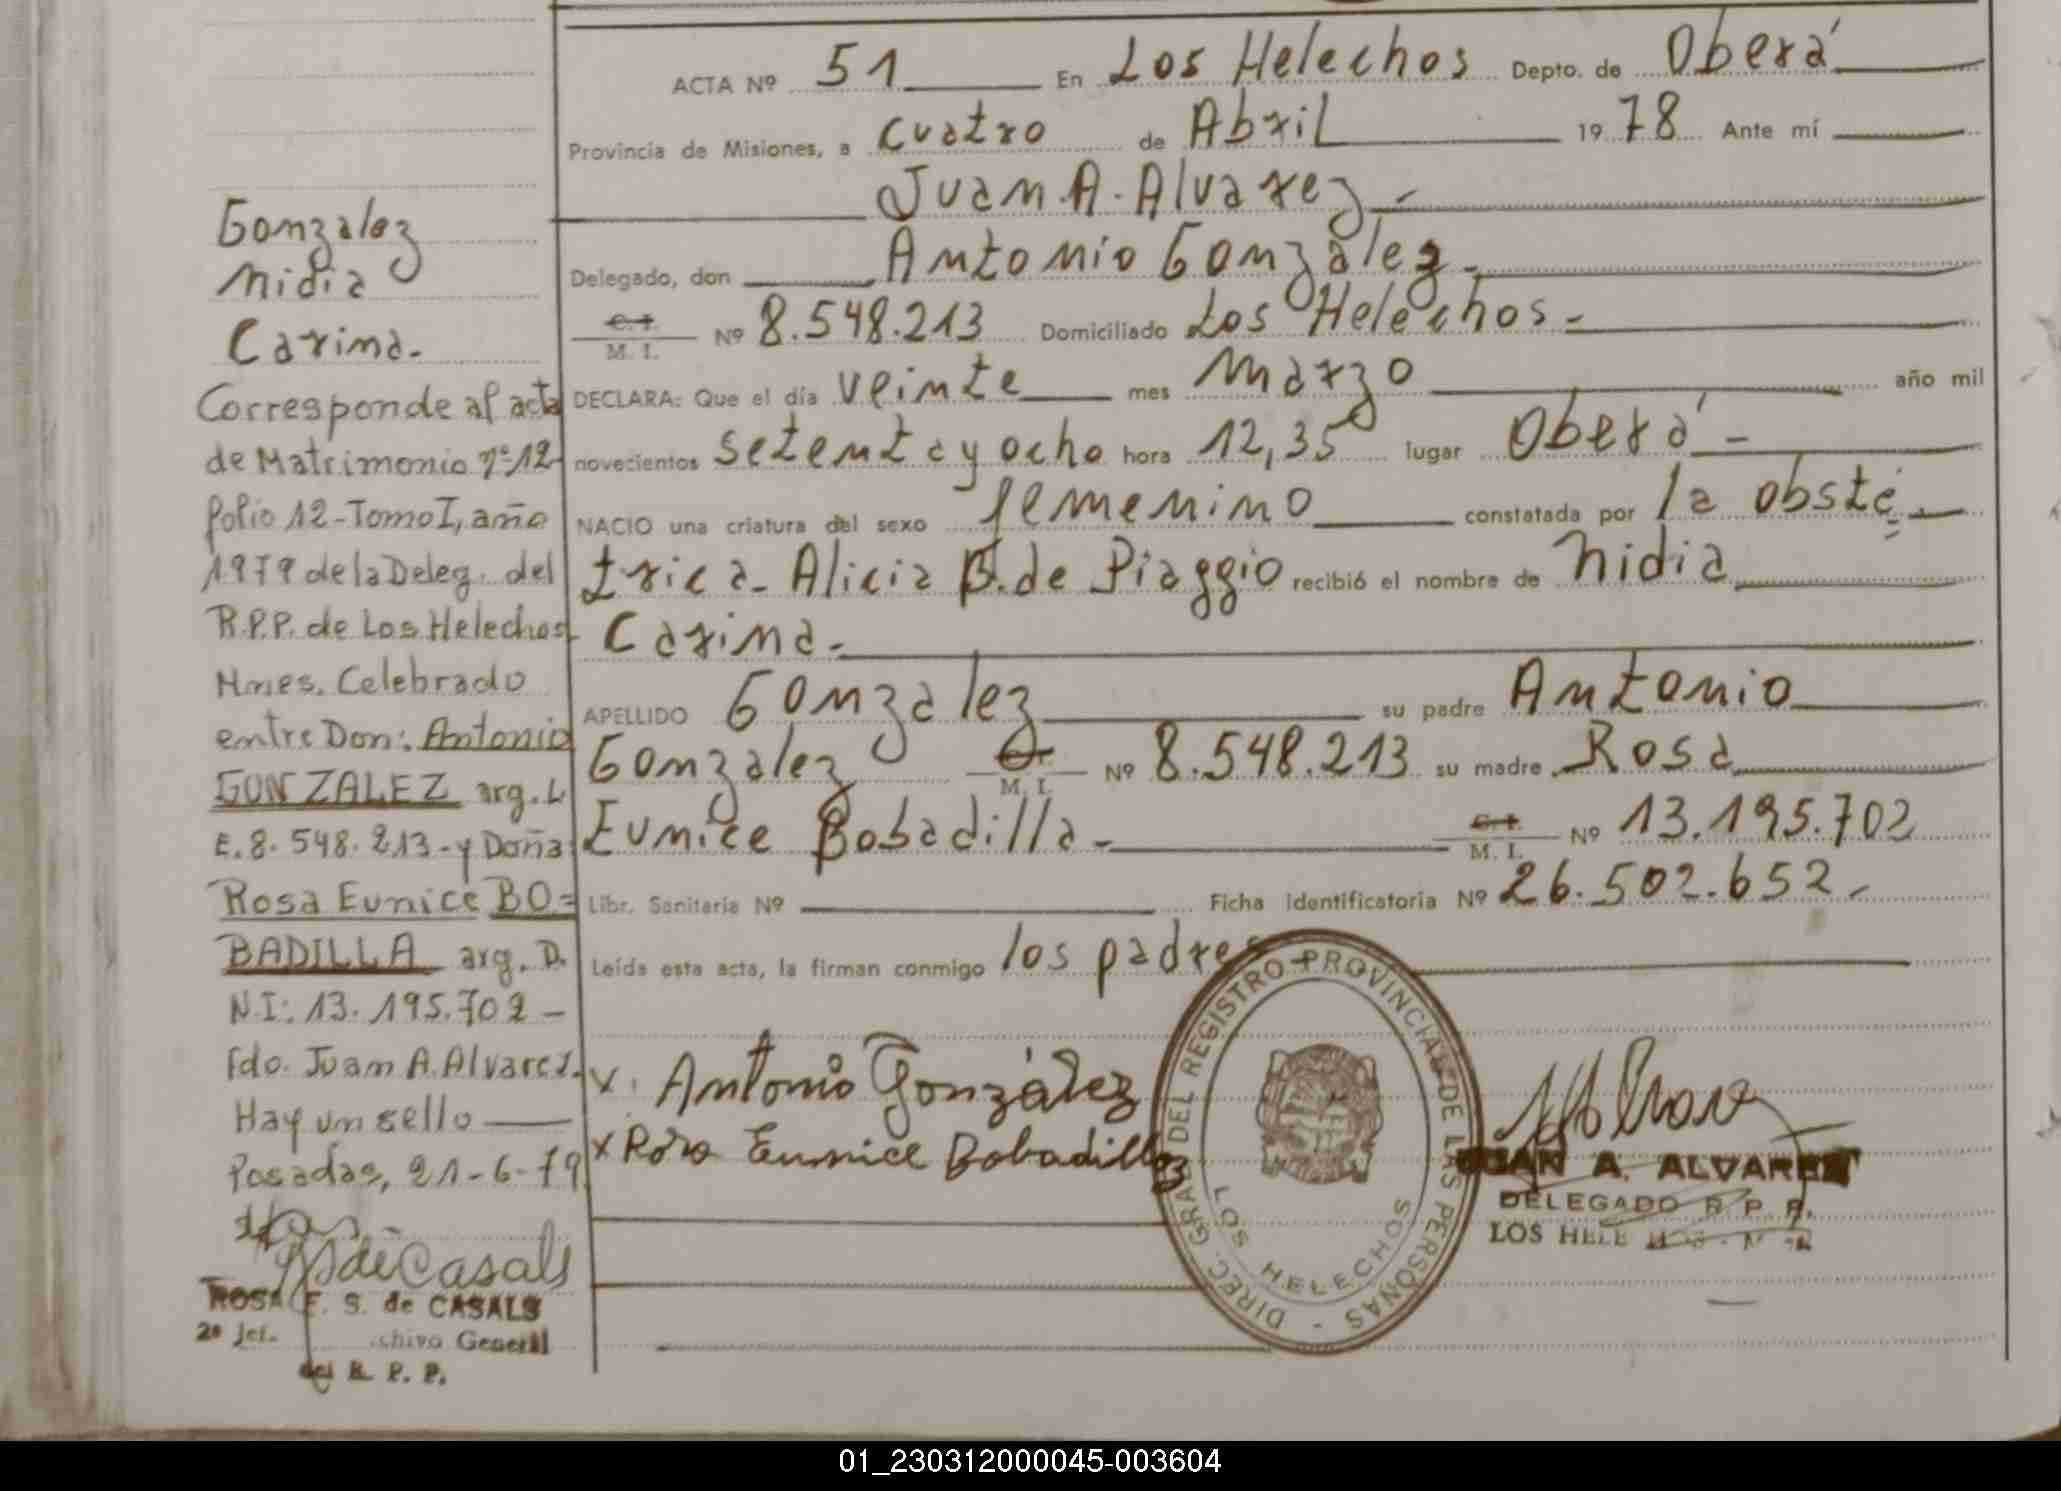 ACTA Nº 51 En Los Helechos Depto. de Oberá
Provincia de Misiones, a cuatro de Abril 1978 Ante mí
Juan A. Alvarez -
Delegado, don Antonio Gonzalez -
C. I. M. I. Nº 8.548.213 Domiciliado Los Helechos -
DECLARA: Que el día veinte mes marzo año mil
novecientos setenta y ocho hora 12,35 lugar Oberá -
NACIO una criatura del sexo femenino constatada por la obsté
trica - Alicia B. de Piaggio recibió el nombre de Nidia
Carina -
APELLIDO Gonzalez su padre Antonio
Gonzalez M. I. Nº 8.548.213 su madre Rosa
Eunice Bobadilla - C. I. M. I. Nº 13.195.702
Libr. Sanitaria Nº Ficha Identificatoria Nº 26.502.652 -
Leída esta acta, la firman conmigo los padres
x. Antonio González
x Rosa Eunice Bobadilla
DIREC. GRAL DEL REGISTRO PROVINCIAL DE LAS PERSONAS -
LOS HELECHOS
JUAN A. ALVAREZ
DELEGADO R. P. P.
LOS HELE
Gonzalez
Nidia
Carina -
Corresponde al acta
de Matrimonio nº 12
folio 12 - Tomo I, año
1979 de la Deleg. del
R.P.P. de Los Helechos
Mnes. Celebrado
entre Don: Antonio
GONZALEZ arg. L
E. 8.548.213 - y Doña
Rosa Eunice BO=
BADILLA arg. D.
N.I: 13.195.702 -
Fdo. Juan A. Alvarez.
Hay un sello
Posadas, 21-6-79
de Casals
ROSA E. S. de CASALS
2º Jef. chivo General
del R. P. P.
01_230312000045-003604